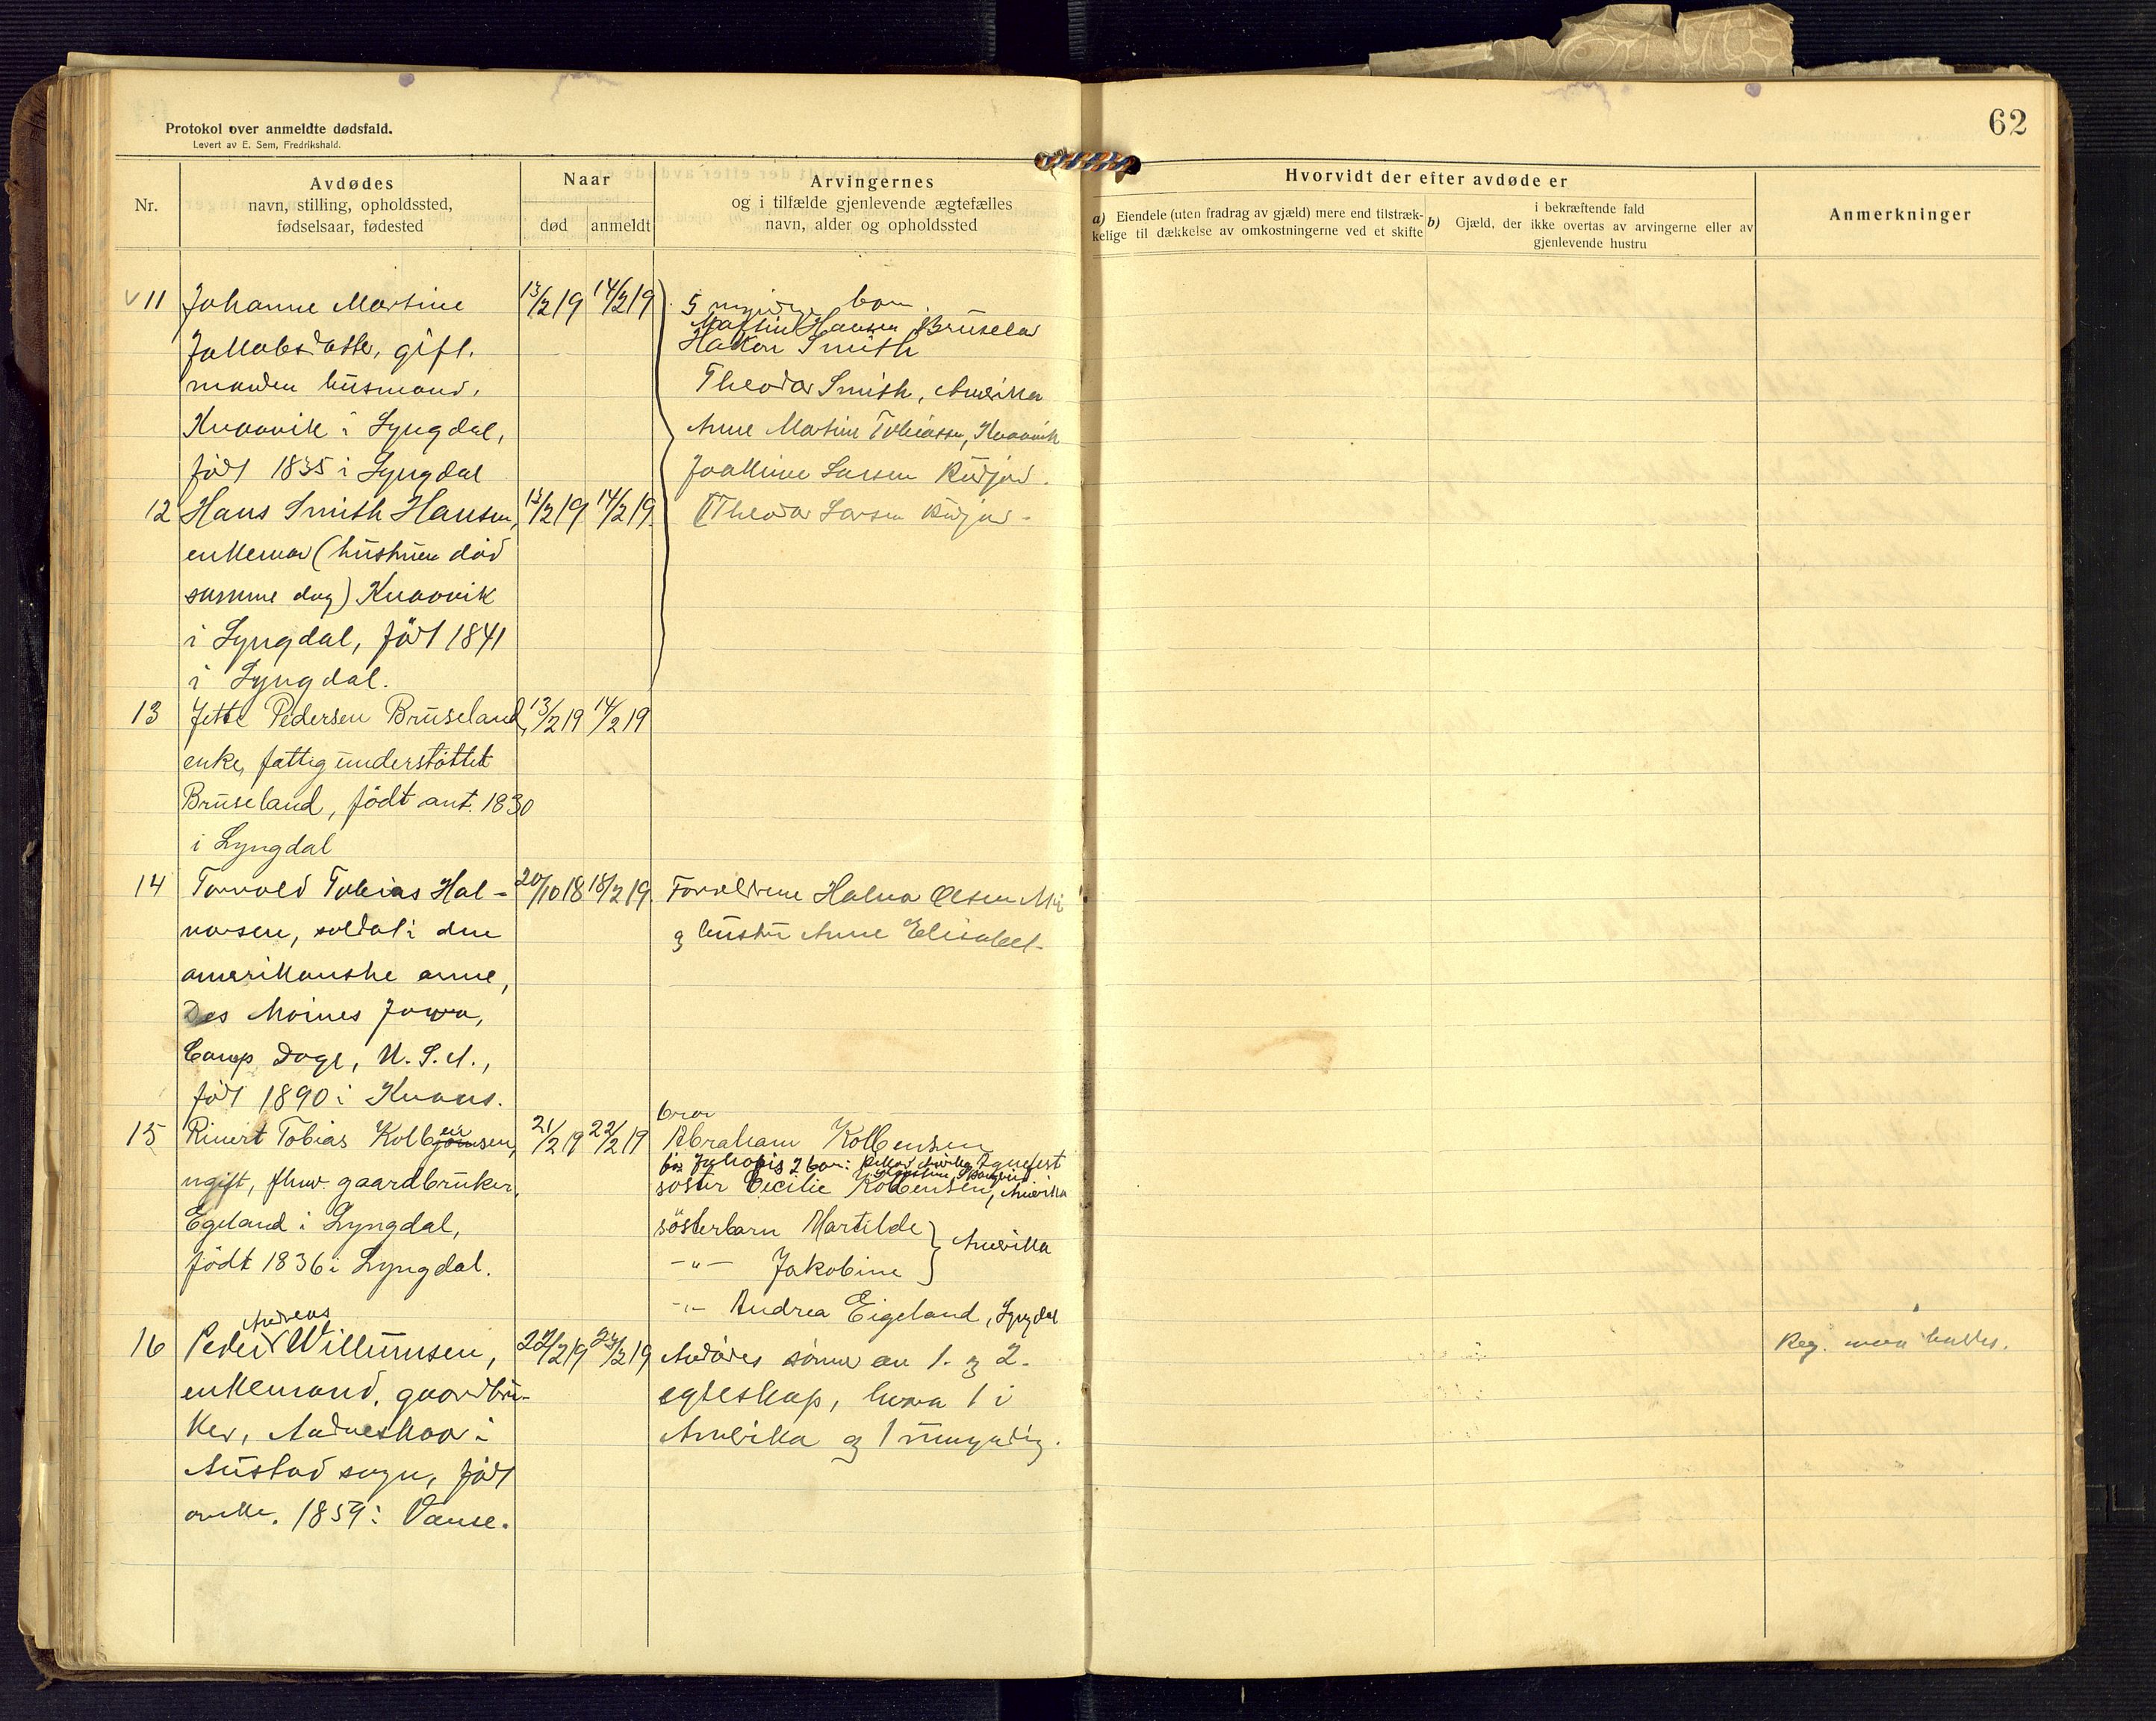 62
Protokol over anmeldte dødsfald.
Levert av E. Sem, Fredrikshald.
Nr.
Avdødes
navn, stilling, opholdssted,
fødselsaar, fødested
Naar
død
anmeldt
Arvingernes
og i tilfælde gjenlevende ægtefælles
navn, alder og opholdssted
Hvorvidt der efter avdøde er
a) Eiendele (uten fradrag av gjæld) mere end tilstræk-
kelige til dækkelse av omkostningerne ved et skifte
i bekræftende fald
b) Gjæld, der ikke overtas av arvingerne eller av
gjenlevende hustru
Anmerkninger
11 Johanne Martine 13/2 19 14/2 19
Jakobsdatter, gift.
manden husmand,
Kvaavik i Lyngdal,
født 1835 i Lyngdal
5 myndige barn
Martin Hansen Bruseland
Hakon Smith
Theodor Smith, Amerika
Anne Martine Tobiassen, Kvaavik
Joakime Larsen Rudjord.
Theodor Larsen Rudjord
12 Hans Smith Hansen, 13/2 19 14/2 19
enkeman (hustruen død
samme dag) Kvaavik
i Lyngdal, født 1841
i Lyngdal.
13 Jette Pedersen Bruseland, 13/2 19 14/2 19
enke, fattigunderstøttet
Bruseland, født ant. 1830
i Lyngdal
14 Torvald Tobias Hal- 20/10 18 18/2 19
vorsen, soldat i den
amerikanske arme,
Des Moines Jowa,
Camp Doge, U.S.A.,
født 1890 i Kvaas.
Forældrene Halvor Olsen Mø
og hustru Anne Elisabet
15 Rinert Tobias Kolbensen, 21/2 19 22/2 19
ugift, fhv. gaardbruker,
Egeland i Lyngdal,
født 1836 i Lyngdal.
bror
Abraham Kolbensen
søster Cecilie Kolbensen, Amerika
søsterbarn Martilde
-"- Jakobine } Amerika
-"- Andrea Eigeland, Lyngdal
Andreas
16 Peder Willumsen, 22/2 19 24/2 19
enkemand, gaardbru-
ker, Andneskaar i
Austad sogn, født
1859 i Vanse.
Avdødes sønner av 1. og 2.
egteskap, hvorav 1 i
Amerika og 1 umyndig.
Reg. maa holdes.